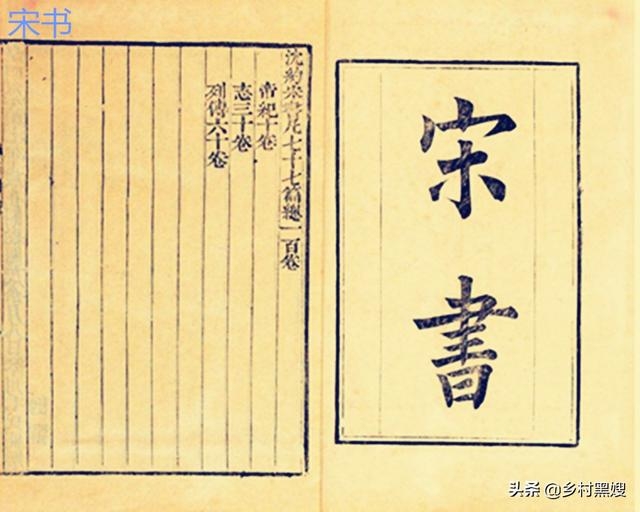 宋书
宋
書
沈約宋書凡七十七篇總一百卷
帝紀十卷
志三十卷
列傳六十卷
头条 @乡村黑嫂